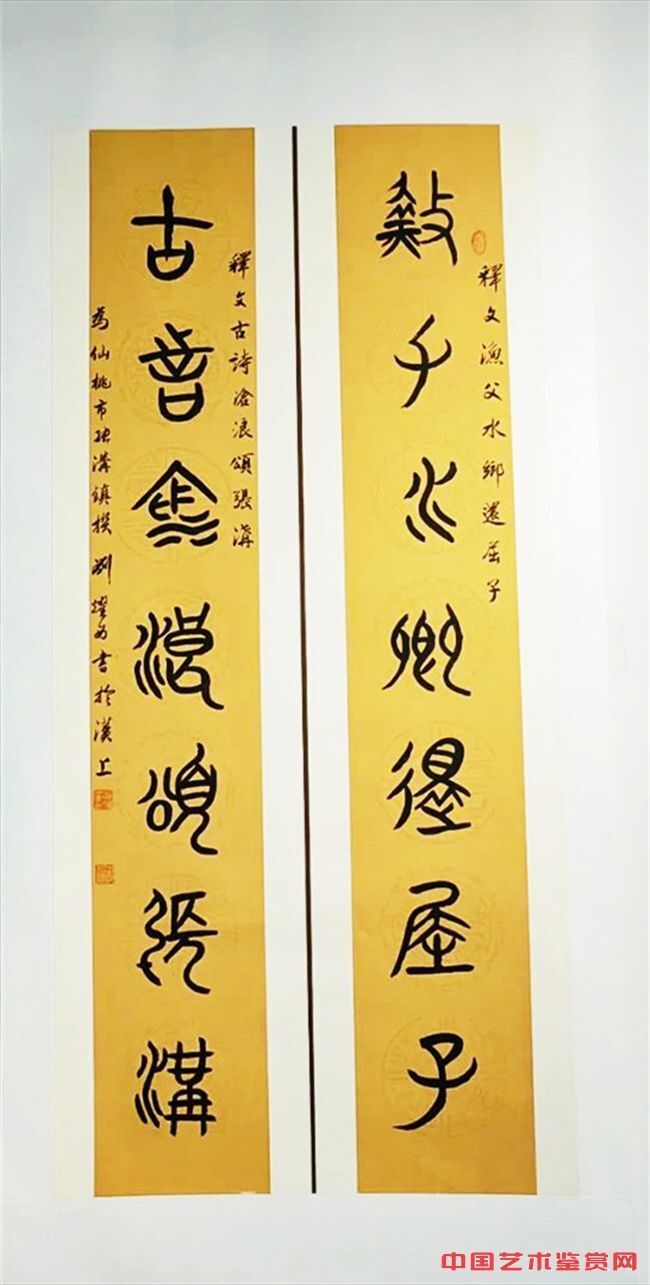 漁父水鄉還屈子
釋文漁父水鄉還屈子
古詩滄浪頌張溝
釋文古詩滄浪頌張溝
為仙桃市張溝鎮撰 劉耀為書於漢上
中国艺术鉴赏网